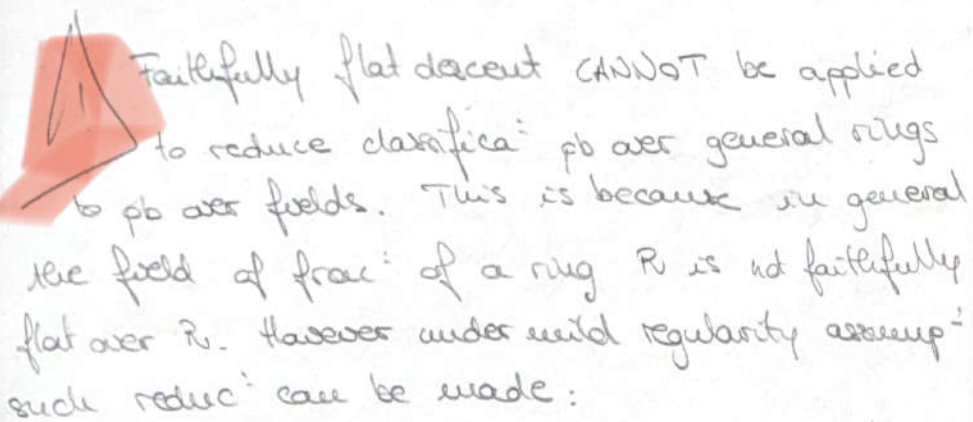 Faithfully flat descent CANNOT be applied
to reduce classifica⁼ pb over general rings
to pb over fields. This is because in general
the field of frac⁼ of a ring R is not faithfully
flat over R. However under mild regularity assump⁼
such reduc⁼ can be made: